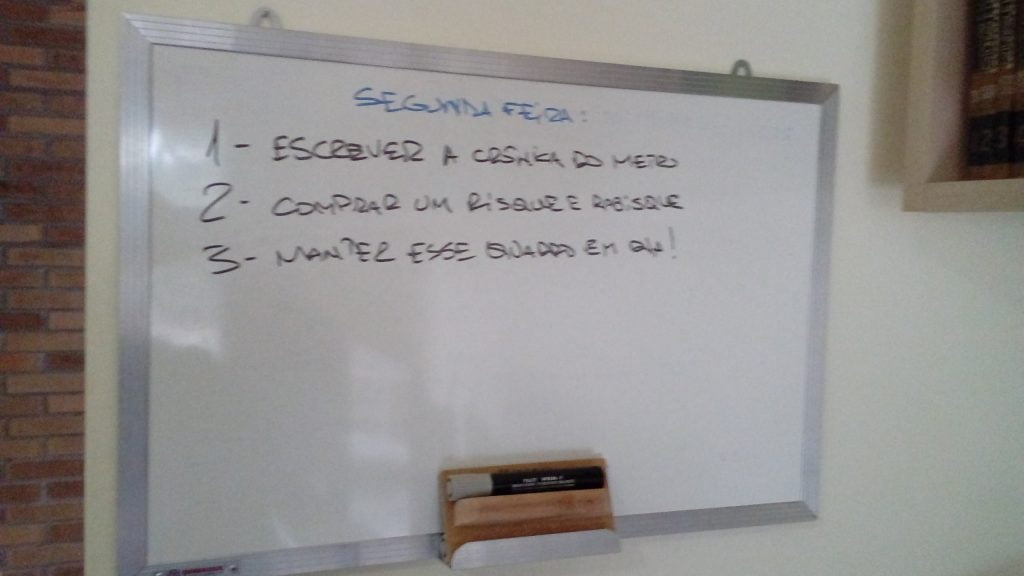 SEGUNDA FEIRA:
1- ESCREVER A CRÔNICA DO METRO
2- COMPRAR UM RISQUE E RABISQUE
3- MANTER ESSE QUADRO EM DIA!